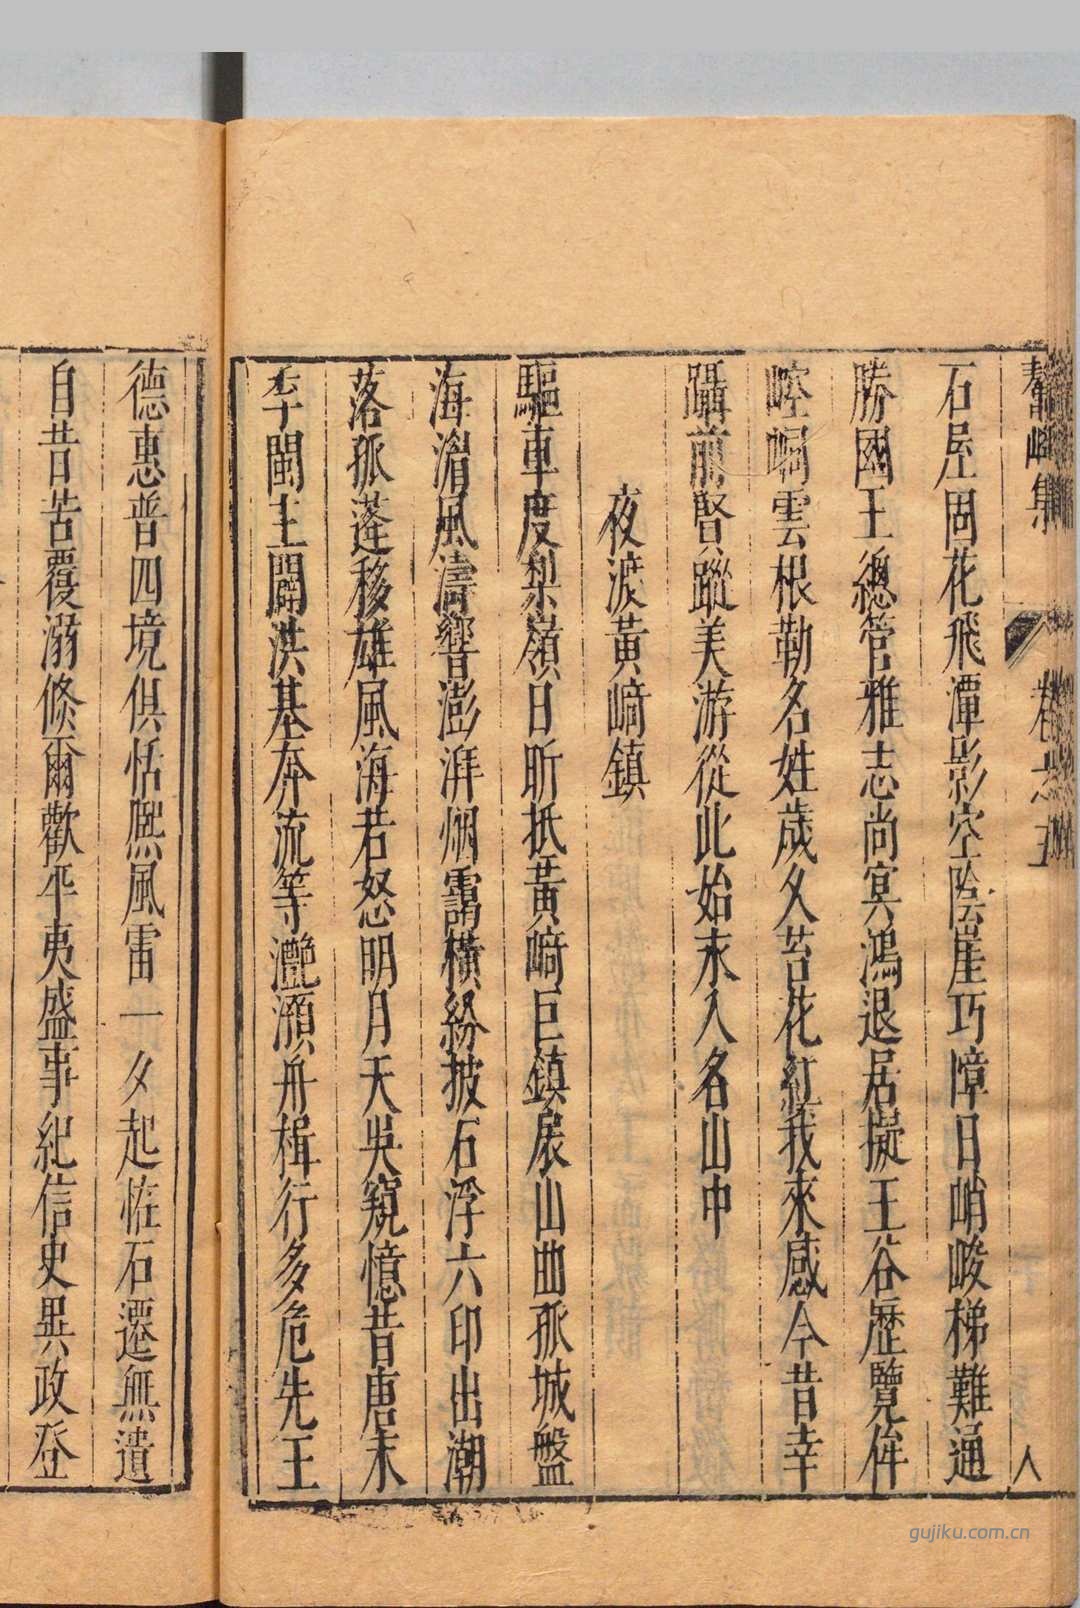 石屋固花飛潭影空陰崖巧障日峭峻梯難通
勝國王總管雅志尚冥鴻退居擬王谷歷覽侔
崆峒雲根勒名姓歲久苔花紅我來感今昔幸
躡前賢蹤美游從此始永入名山中
夜渡黃崎鎮
驅車度梨嶺日昕抵黃崎巨鎮展山曲孤城盤
海湄風濤響澎湃烟靄橫紛披石浮六印出潮
落孤蓬移雄風海若怒明月天吳窺憶昔唐末
季閩主闢洪基奔流等灩澦舟楫行多危先王
德惠普四境俱恬熙風雷一夕起恠石遷無遺
自昔苦覆溺倏爾歡平夷盛事紀信史異政登
卷之五
人
gujiku.com.cn